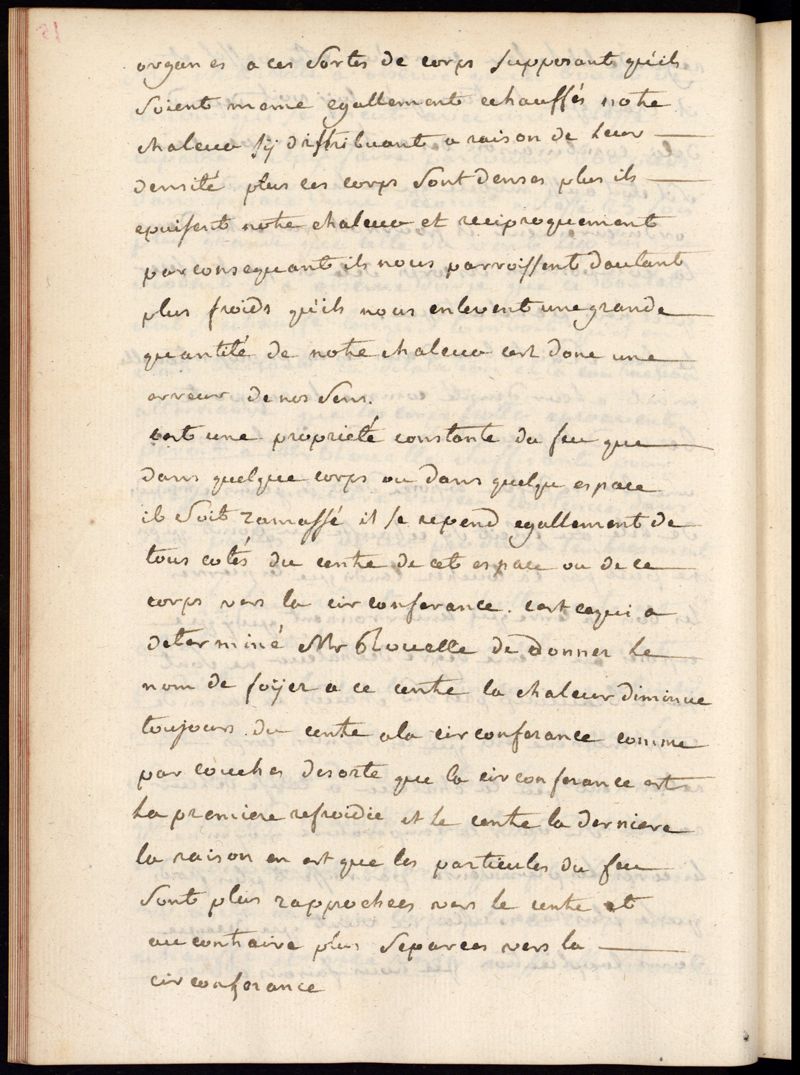 organes a ces sortes de corps supposant qu'ils
soient meme egallement echauffés notre
chaleur sÿ distribuant a raison de leur
densité plus ces corps sont denses plus ils
epuisent notre chaleur et reciproquement
par consequant ils nous parroissent dautant
plus froids qu'ils nous enlevent une grande
quantité de notre chaleur cest donc une
erreur de nos sens.
cest une proprieté constante du feu que
dans quelque corps ou dans quelqu espace
il soit ramassé il se repend egallement de
tous cotés du centre de cet espace ou de ce
corps vers la circonferance. cest ce qui a
determiné Mr Rouelle de donner le
nom de foÿer a ce centre la chaleur diminue
toujours du centre a la circonferance comme
par couches desorte que la circonferance est
la premiere refroidie et le centre la derniere
la raison en est que les particules du feu
sont plus rapprochées vers le centre et
au contraire plus separées vers la
circonferance